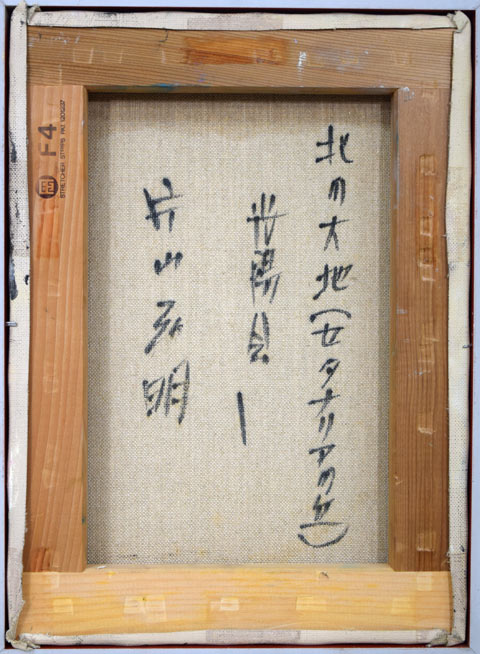 北の大地(セタナリアの丘)
光陽会
片山弘明
F4
STRETCHER STRIPS